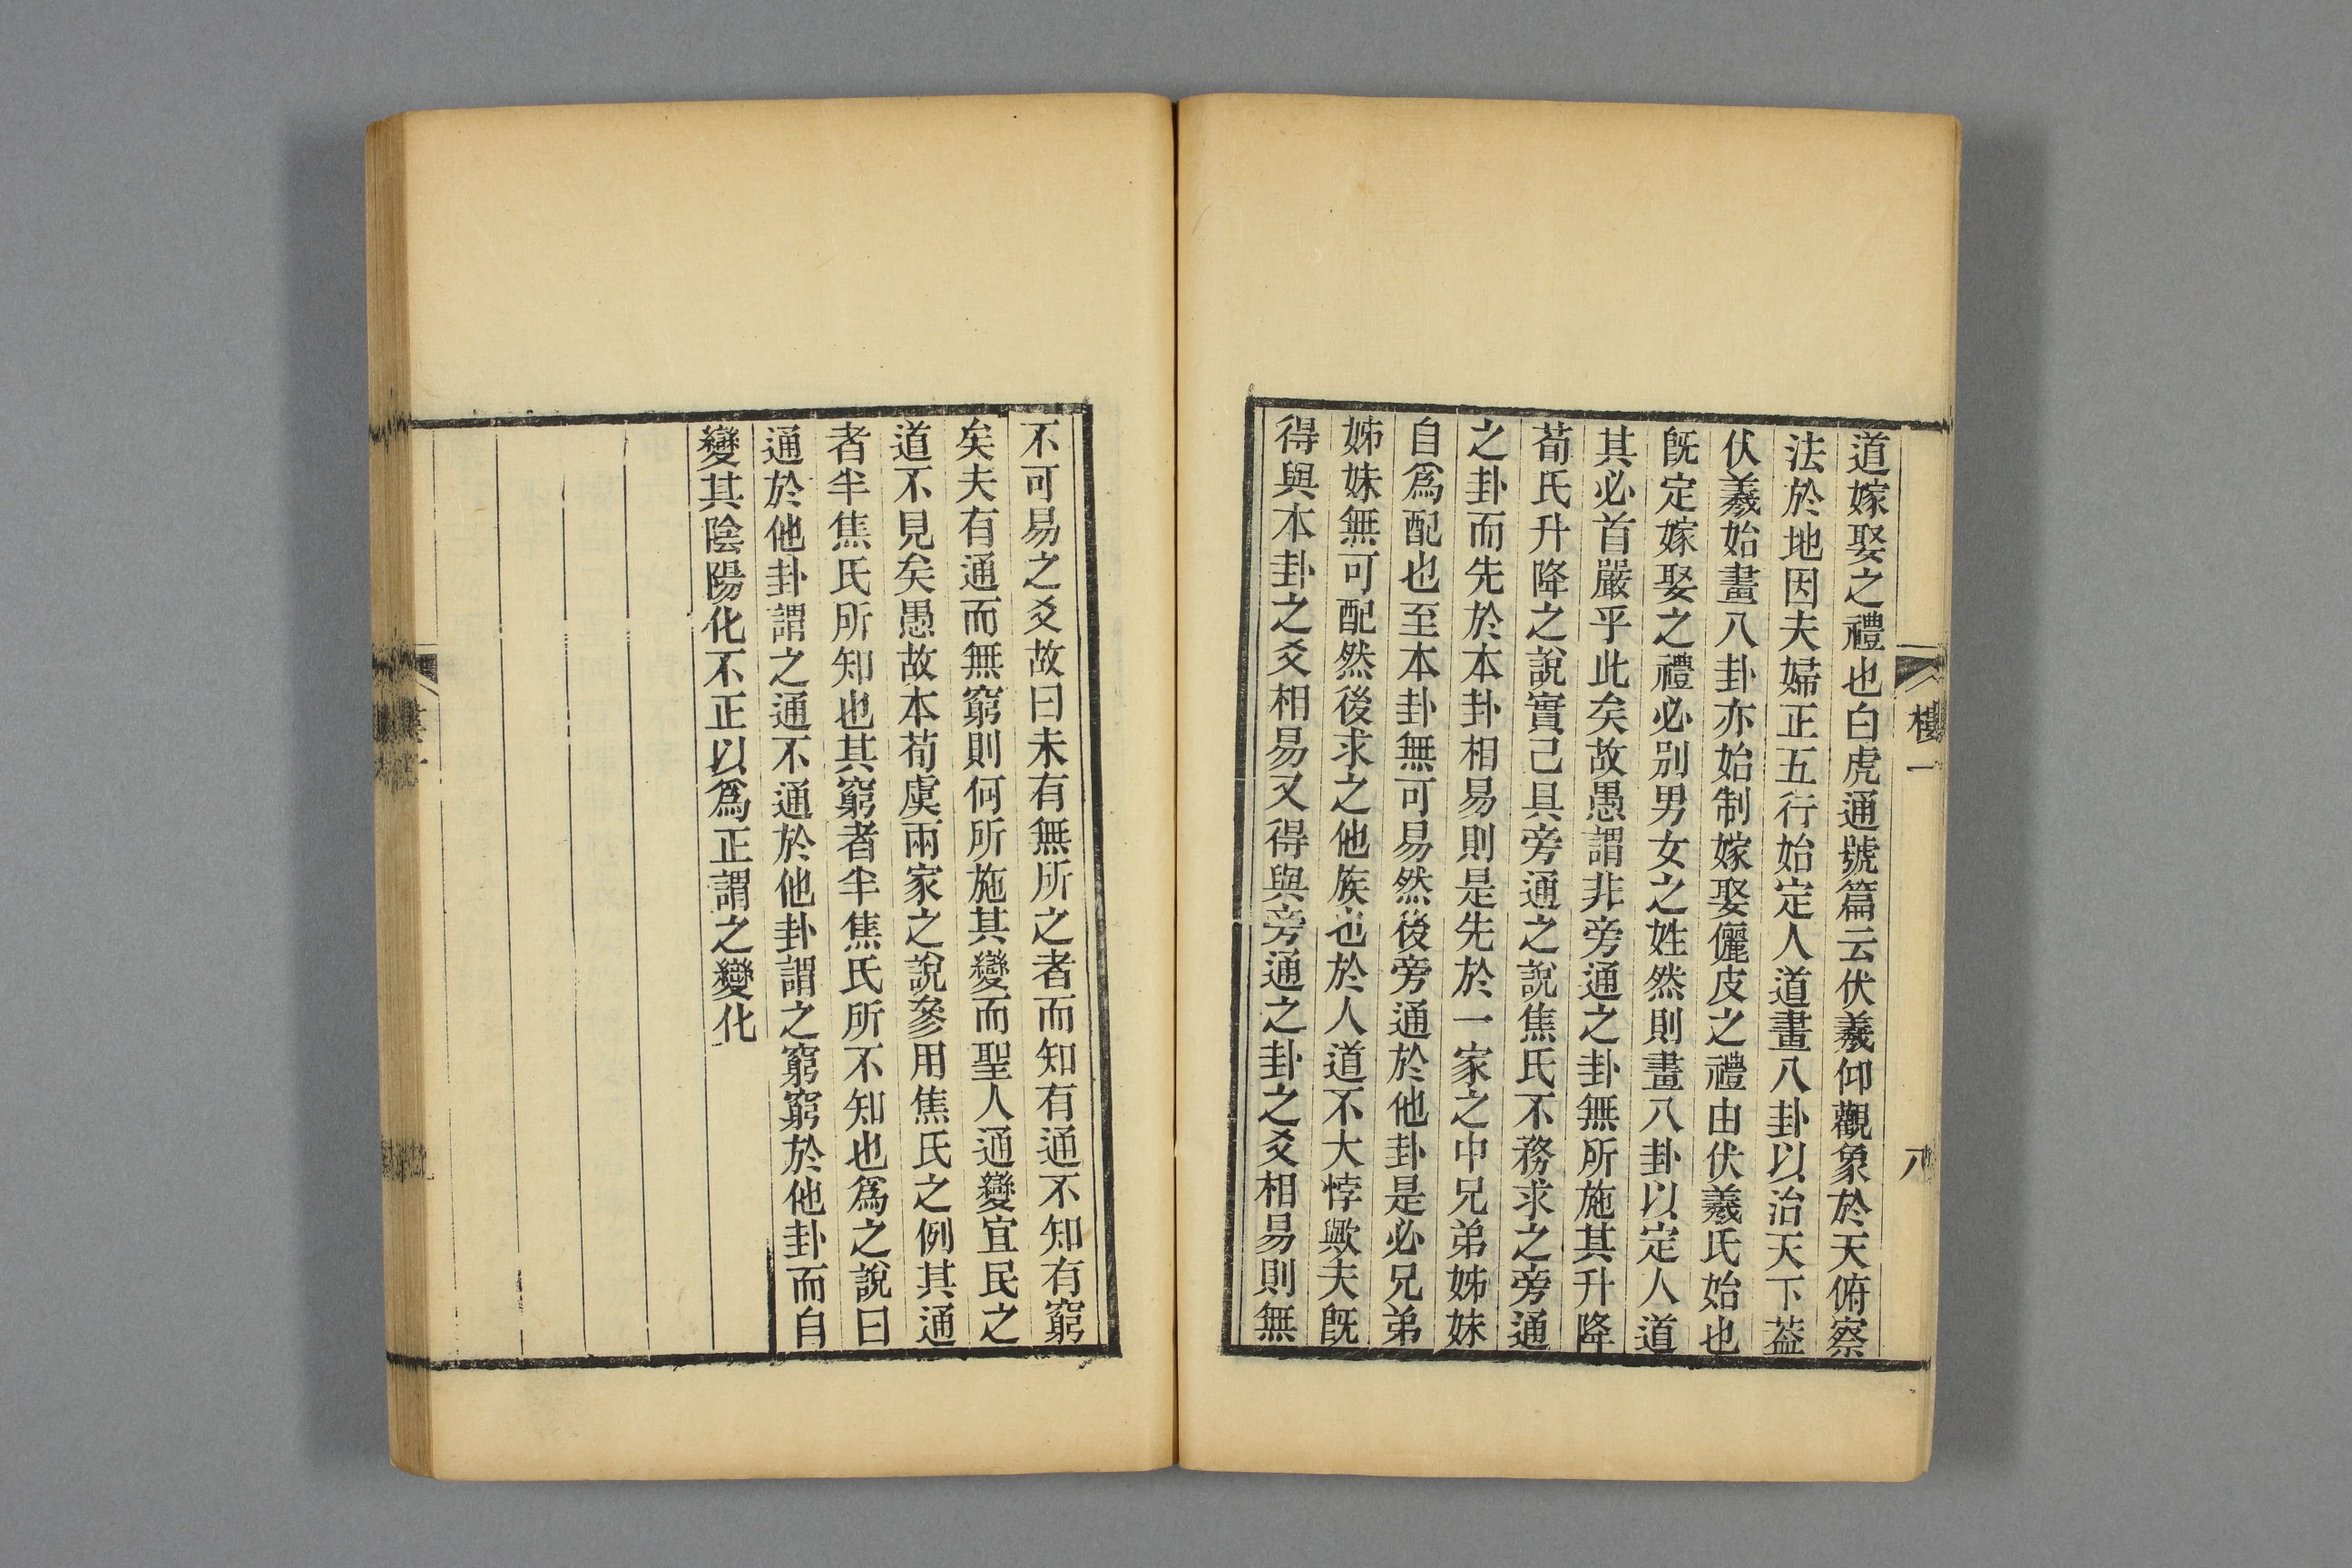 道嫁娶之禮也白虎通號篇云伏羲仰觀象於天俯察
法於地因夫婦正五行始定人道畫八卦以治天下葢
伏羲始畫八卦亦始制嫁娶儷皮之禮由伏羲氏始也
旣定嫁娶之禮必別男女之姓然則畫八卦以定人道
其必首嚴乎此矣故愚謂非旁通之卦無所施其升降
荀氏升降之說實己具旁通之說焦氏不務求之旁通
之卦而先於本卦相易則是先於一家之中兄弟姊妹
自爲配也至本卦無可易然後旁通於他卦是必兄弟
姊妹無可配然後求之他族也於人道不大悖歟夫旣
得與本卦之爻相易又得與旁通之卦之爻相易則無
不可易之爻故曰未有無所之者而知有通不知有窮
矣夫有通而無窮則何所施其變而聖人通變宜民之
道不見矣愚故本荀虞兩家之說參用焦氏之例其通
者半焦氏所知也其窮者半焦氏所不知也爲之說曰
通於他卦謂之通不通於他卦謂之窮窮於他卦而自
變其陰陽化不正以爲正謂之變化
一
八